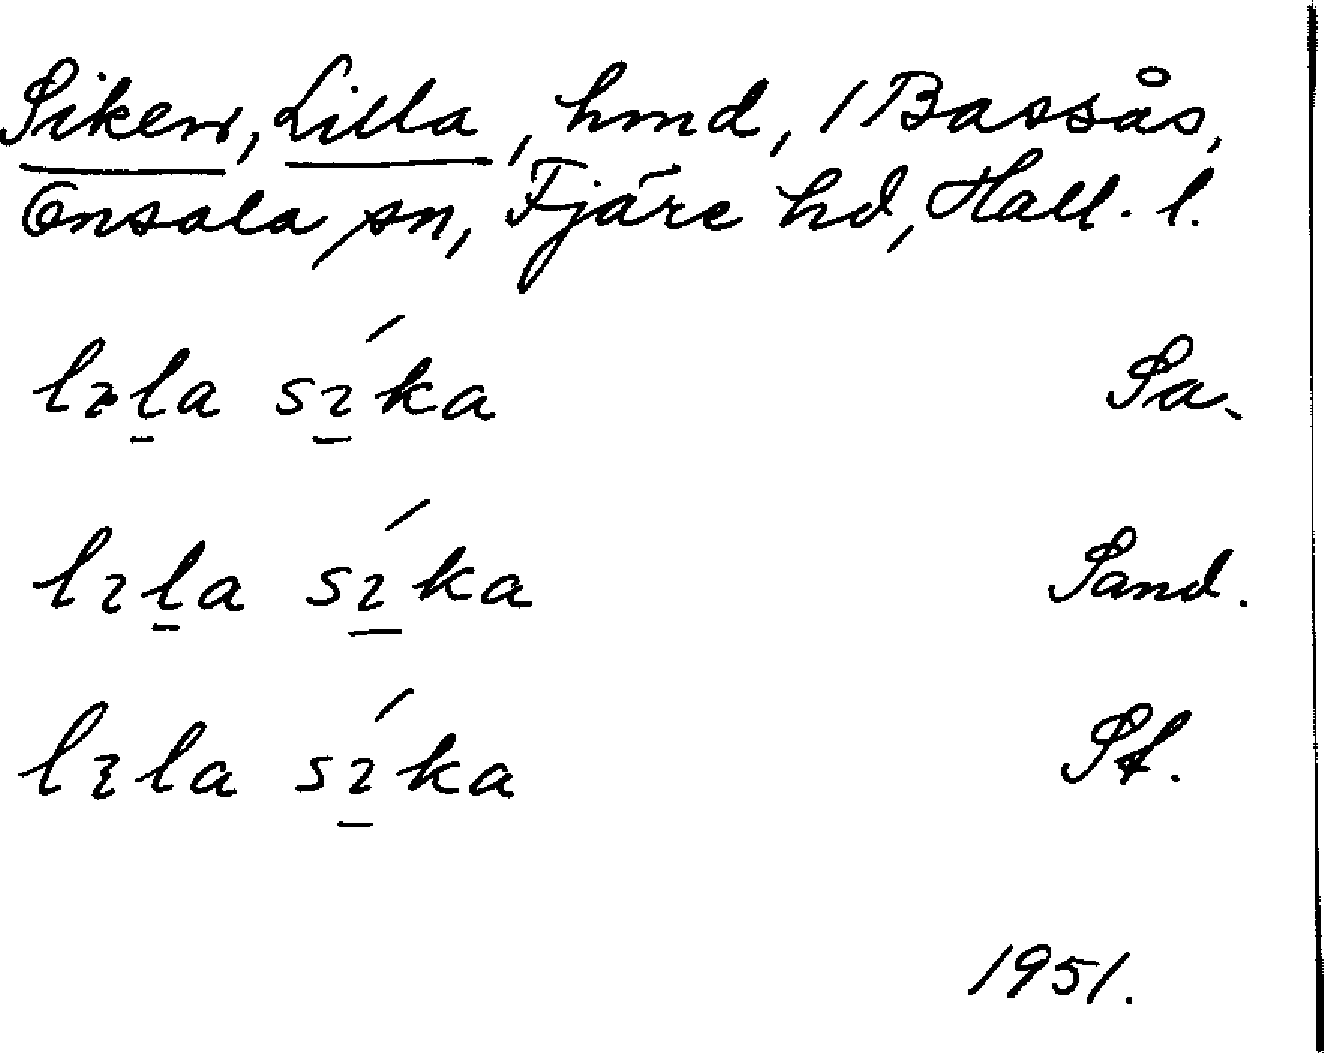 Siken, Lilla, hmd, / Bassås,
Onsala sn, Fjäre hd, Hall. l.
lɩla sɩ́ka Sa.
lɩla sɩ́ka Sand.
lɩla sɩ́ka St.
1951.